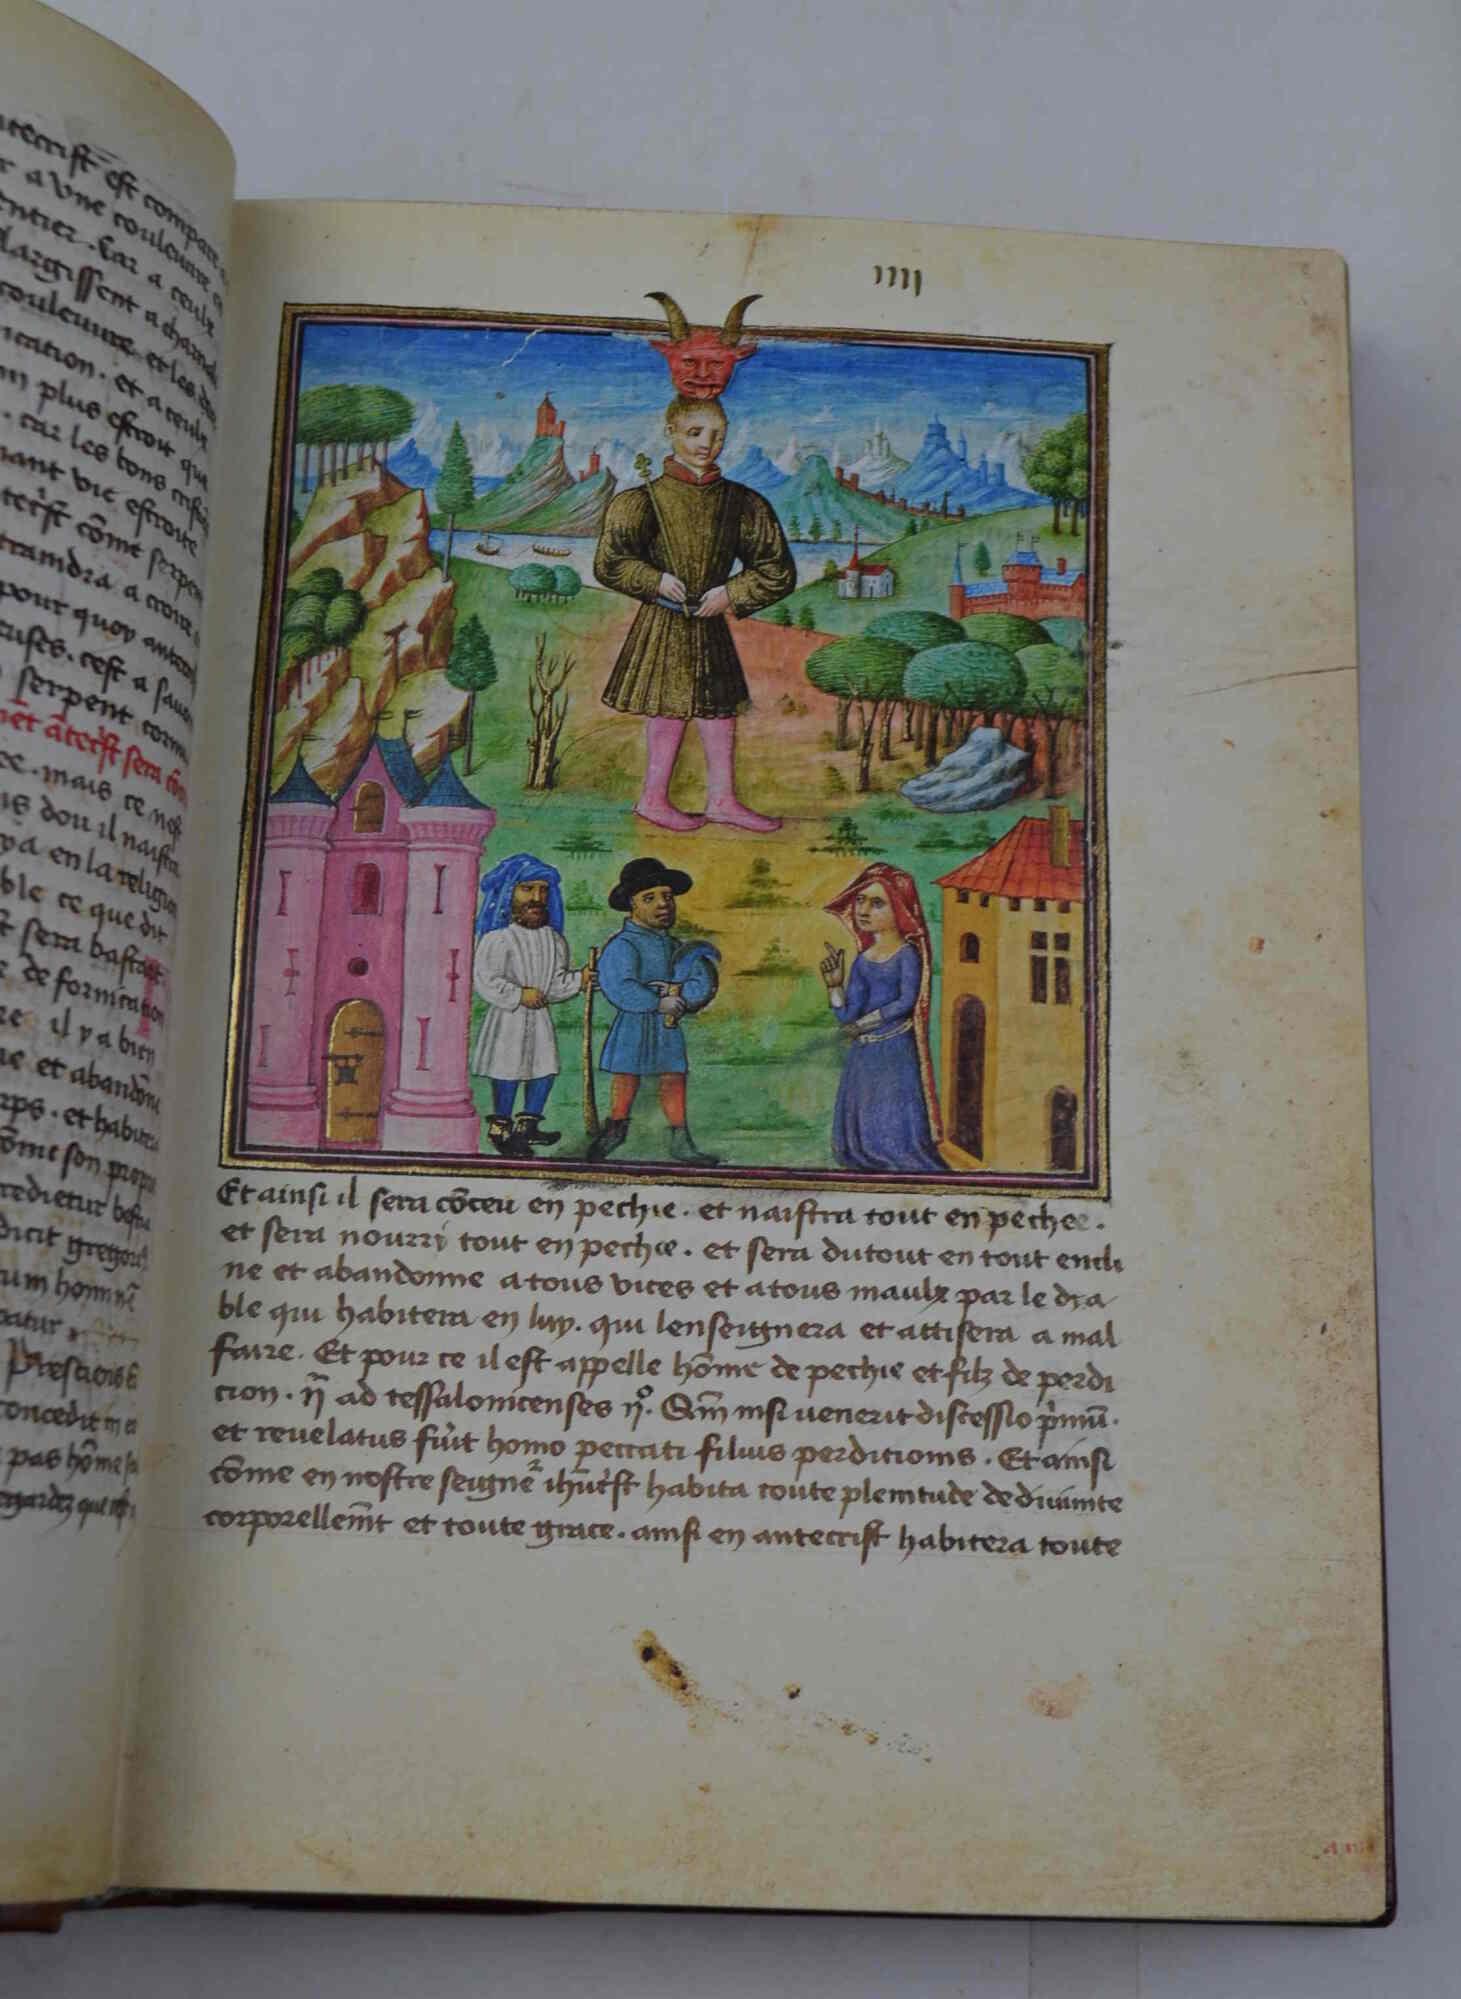 tecrist est compare a
r a une couleuvre en
entier. Car a ceulx
largissent a chascun
couleuvre. et les
nication. et a ceulx
plus estroit que
. car les bons cristiens
nant vie estroite
tecrist cõme serpent
tramdra a croire
pour quoy antecrist
cuses. cest a savoir
serpent cornu
ñet ãtecrist sera cõ
ce. mais ce nest
is dou il naistra
y a en la religion
ble ce que dit
t sera bastart
de fornication
re il y a bien
ue et abandõne
rps. et habitera
cõme son propre
redietur bestia
dicit gregorius
tum hominẽ
catur
Prescions
concedit
pas hõme
regardez que
IIII
Et ainsi il sera cõceu en pechie. et naistra tout en pechee.
et sera nourri tout en pechie. et sera dutout en tout encli
ne et abandonne a tous vices et a tous maulx par le dia
ble qui habitera en luy. qui lenseignera et attisera a mal
faire. Et pour ce il est appelle hõme de pechie et filz de perdi
cion. ij ad tessalonicenses ijº. Qm̃ nisi venerit discessio p̃mũ.
et revelatus fuit homo peccati filius perditionis. Et ainsi
cõme en nostre seignr̃ ihũcrist habita toute plenitude de divinite
corporellem̃t et toute grace. ainsi en antecrist habitera toute